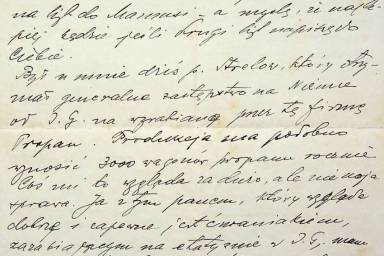 na list do Mamusi - a myślę, że najle-
piej będzie jeśli drugi list napiszę do
Ciebie.
Był u mnie dziś p. Strelow, który otrzy-
mał generalne zastępstwo na Niemcy
od I. G. na wyrabiany przez tę firmę
Propan. Produkcja ma podobno
wynosić 3000 wagonów propanu rocznie
Coś mi to wygląda za dużo, ale nie moja
sprawa. Ja z tym panem, który wygląda
dobrze i zapewne jest cwaniakiem,
zarabiającym na etatyzmie w I. G., mam